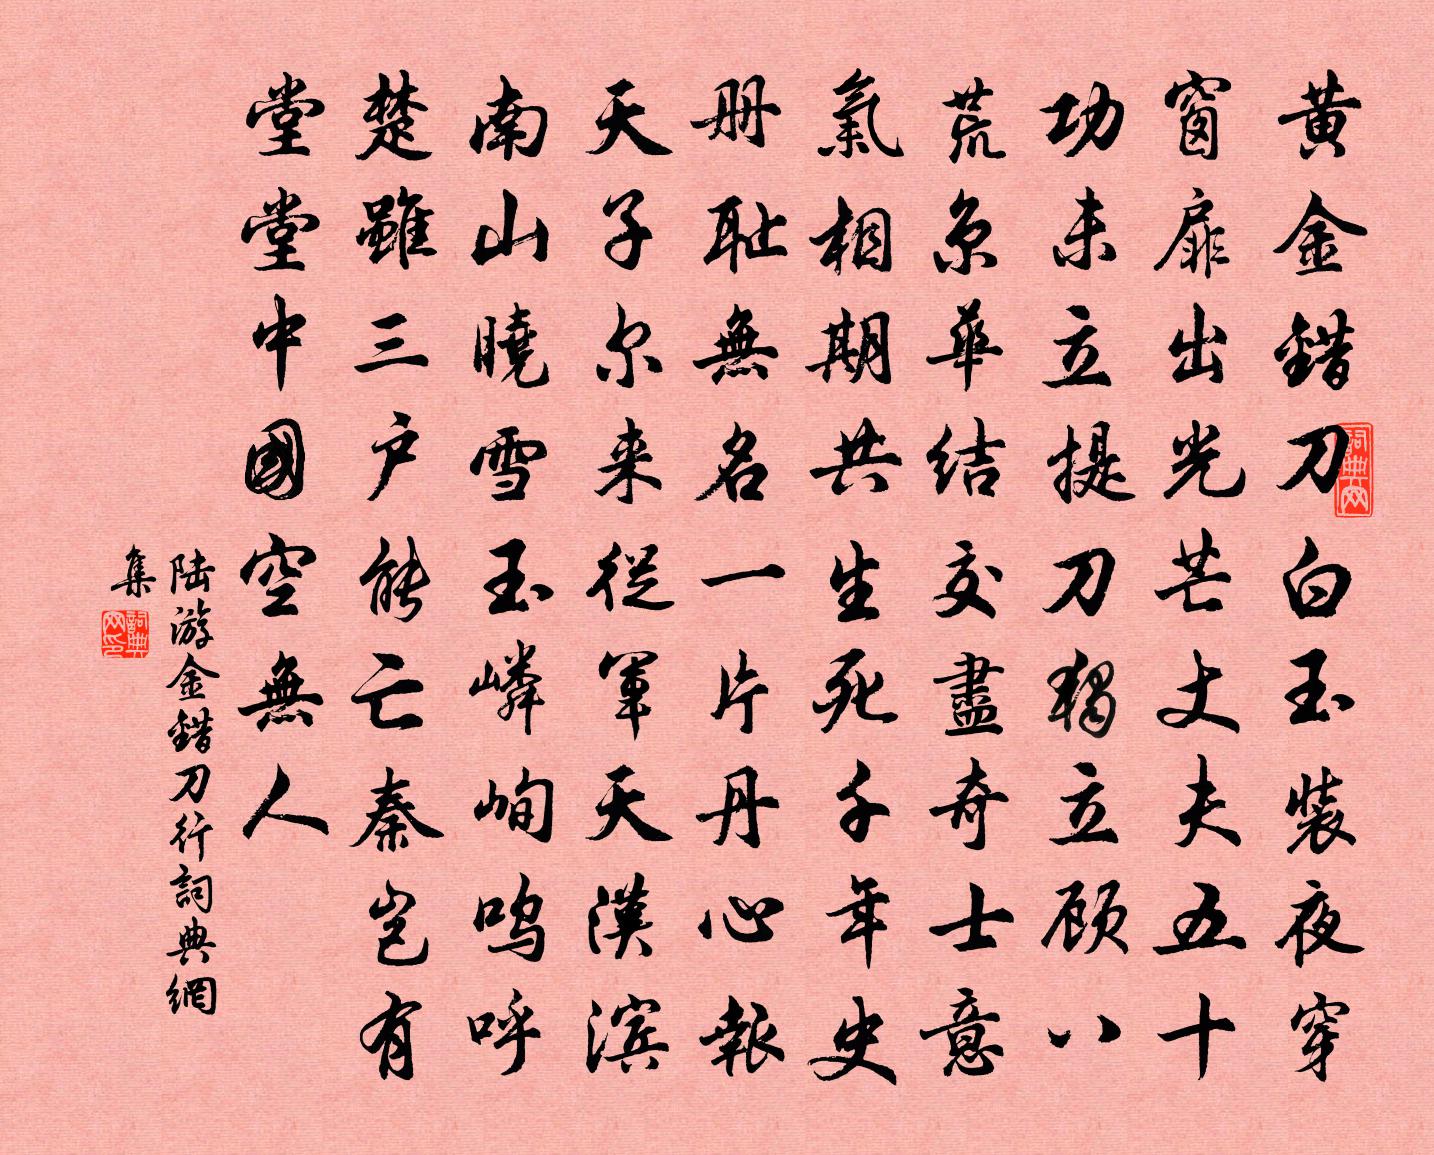 黄金錯刀白玉裝夜穿
窗扉出光芒丈夫五十
功未立提刀獨立顾八
荒京華结交盡奇士意
氣相期共生死千年史
册耻無名一片丹心報
天子尔来從軍天漢滨
南山曉雪玉嶙峋鸣呼
楚雖三户能亡秦豈有
堂堂中國空無人
陆游金錯刀行詞典網
集
詞典网
詞典网印